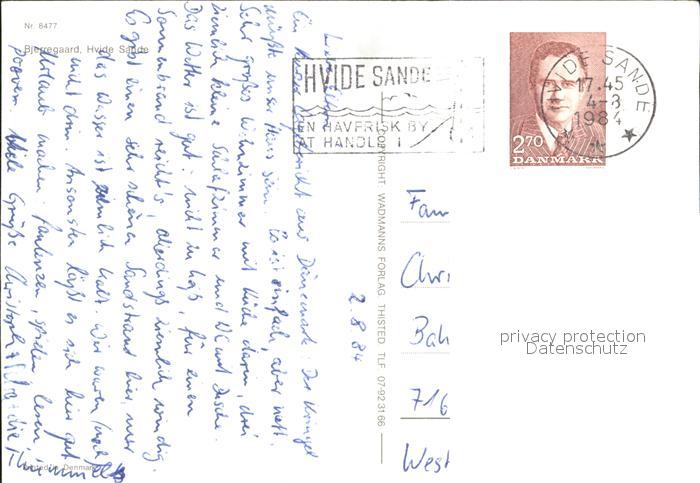 Nr. 8477
Bjerregaard, Hvide Sande
HVIDE SANDE
EN HAVFRISK BY
AT HANDLE I
HVIDE SANDE
17.45
4-8
1984
2 70
DANMARK
COPYRIGHT WADMANNS FORLAG THISTED TLF 07-92 31 66
2.8.84
Ein aus Dänemark. Der
müßte unser Haus sein. Es ist einfach, aber nett.
Sehr großes Wohnzimmer mit Küche darin, drei
ziemlich kleine Schlafzimmer und WC und Dusche.
Das Wetter ist gut: nicht zu heiß, für einen
Sonnenbrand reicht's, allerdings ziemlich windig.
Es gibt einen sehr schönen Sandstrand hier, nur
das Wasser ist ziemlich kalt. Wir waren
nicht drin. Ansonsten läßt es sich hier gut
Urlaub machen: faulenzen, spielen, lesen,
Viele Grüße Christoph
Printed in Denmark
Fam
Chri
Bah
716
West
privacy protection
Datenschutz